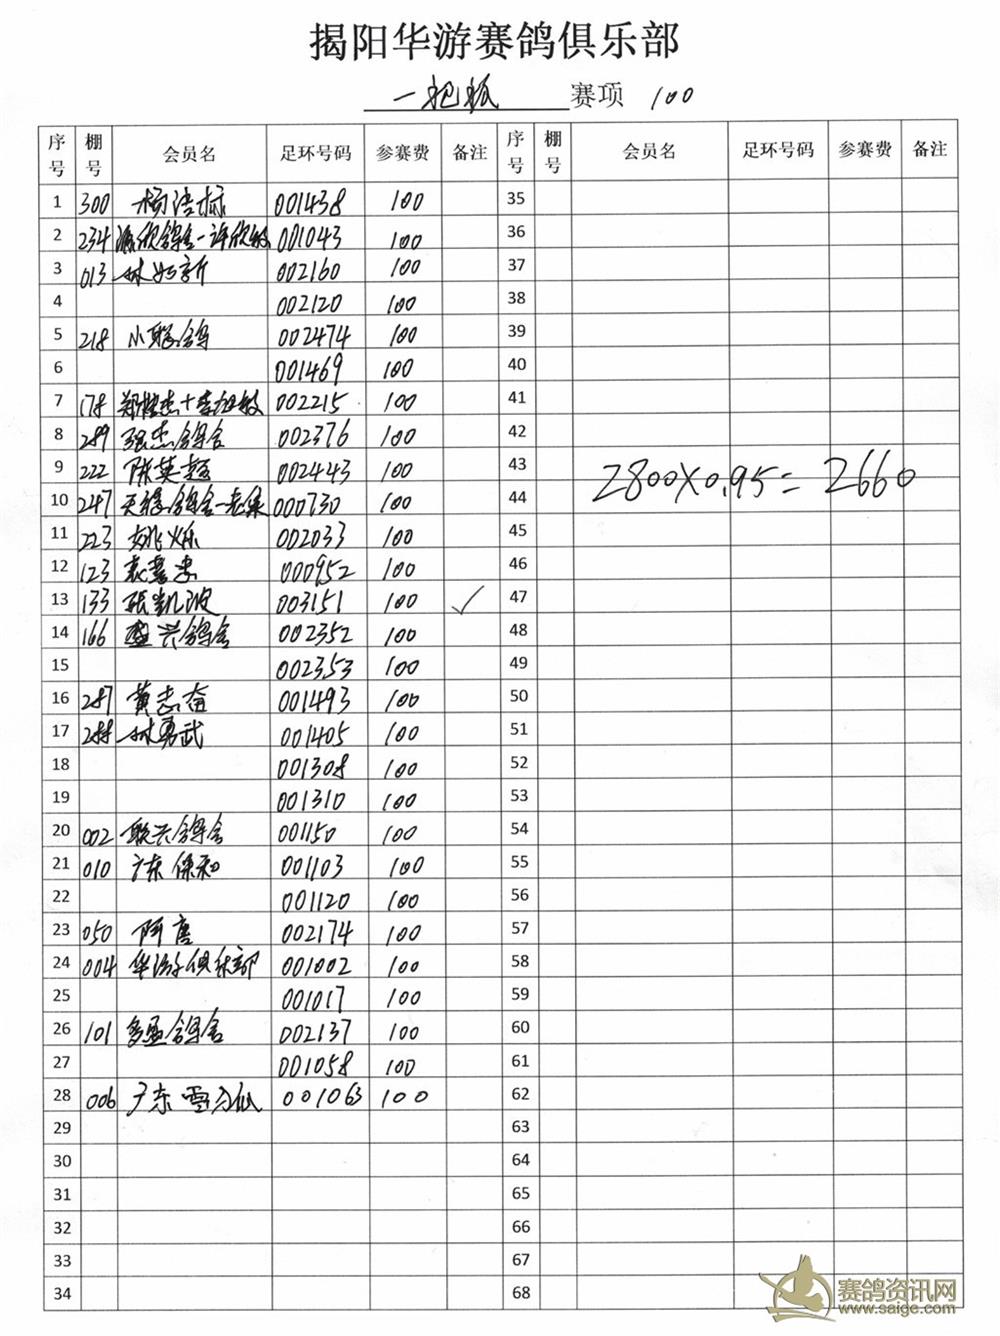 揭阳华游赛鸽俱乐部
赛项 100
序号 棚号 会员名 足环号码 参赛费 备注 序号 棚号 会员名 足环号码 参赛费 备注
1 300 杨洁标 001438 100 35
2 234 001043 100 36
3 013 林 002160 100 37
4 002120 100 38
5 218 小 鸽 002474 100 39
6 001469 100 40
7 178 002215 100 41
8 289 强杰鸽舍 002376 100 42
9 222 陈英超 002443 100 43
2800×0.95=2660
10 247 000730 100 44
11 223 姚烁 002033 100 45
12 123 000952 100 46
13 133 张凯波 003151 100 ✓ 47
14 166 盛兴鸽舍 002352 100 48
15 002353 100 49
16 287 黄志奋 001493 100 50
17 288 林勇武 001405 100 51
18 001308 100 52
19 001310 100 53
20 002 联兴鸽舍 001150 100 54
21 010 广东保和 001103 100 55
22 001120 100 56
23 050 阿 002174 100 57
24 004 华游俱乐部 001002 100 58
25 001017 100 59
26 101 多盈鸽舍 002137 100 60
27 001058 100 61
28 006 广东 001063 100 62
29 63
30 64
31 65
32 66
33 67
34 68
赛鸽资讯网
www.saige.com